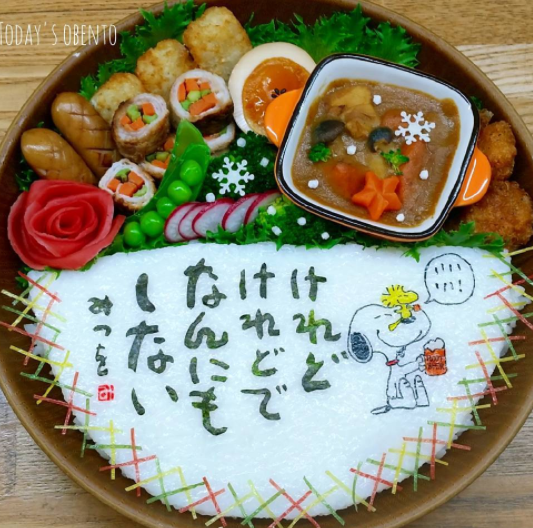 TODAY'S OBENTO
けれど
けれどで
なんにも
しない
みつを